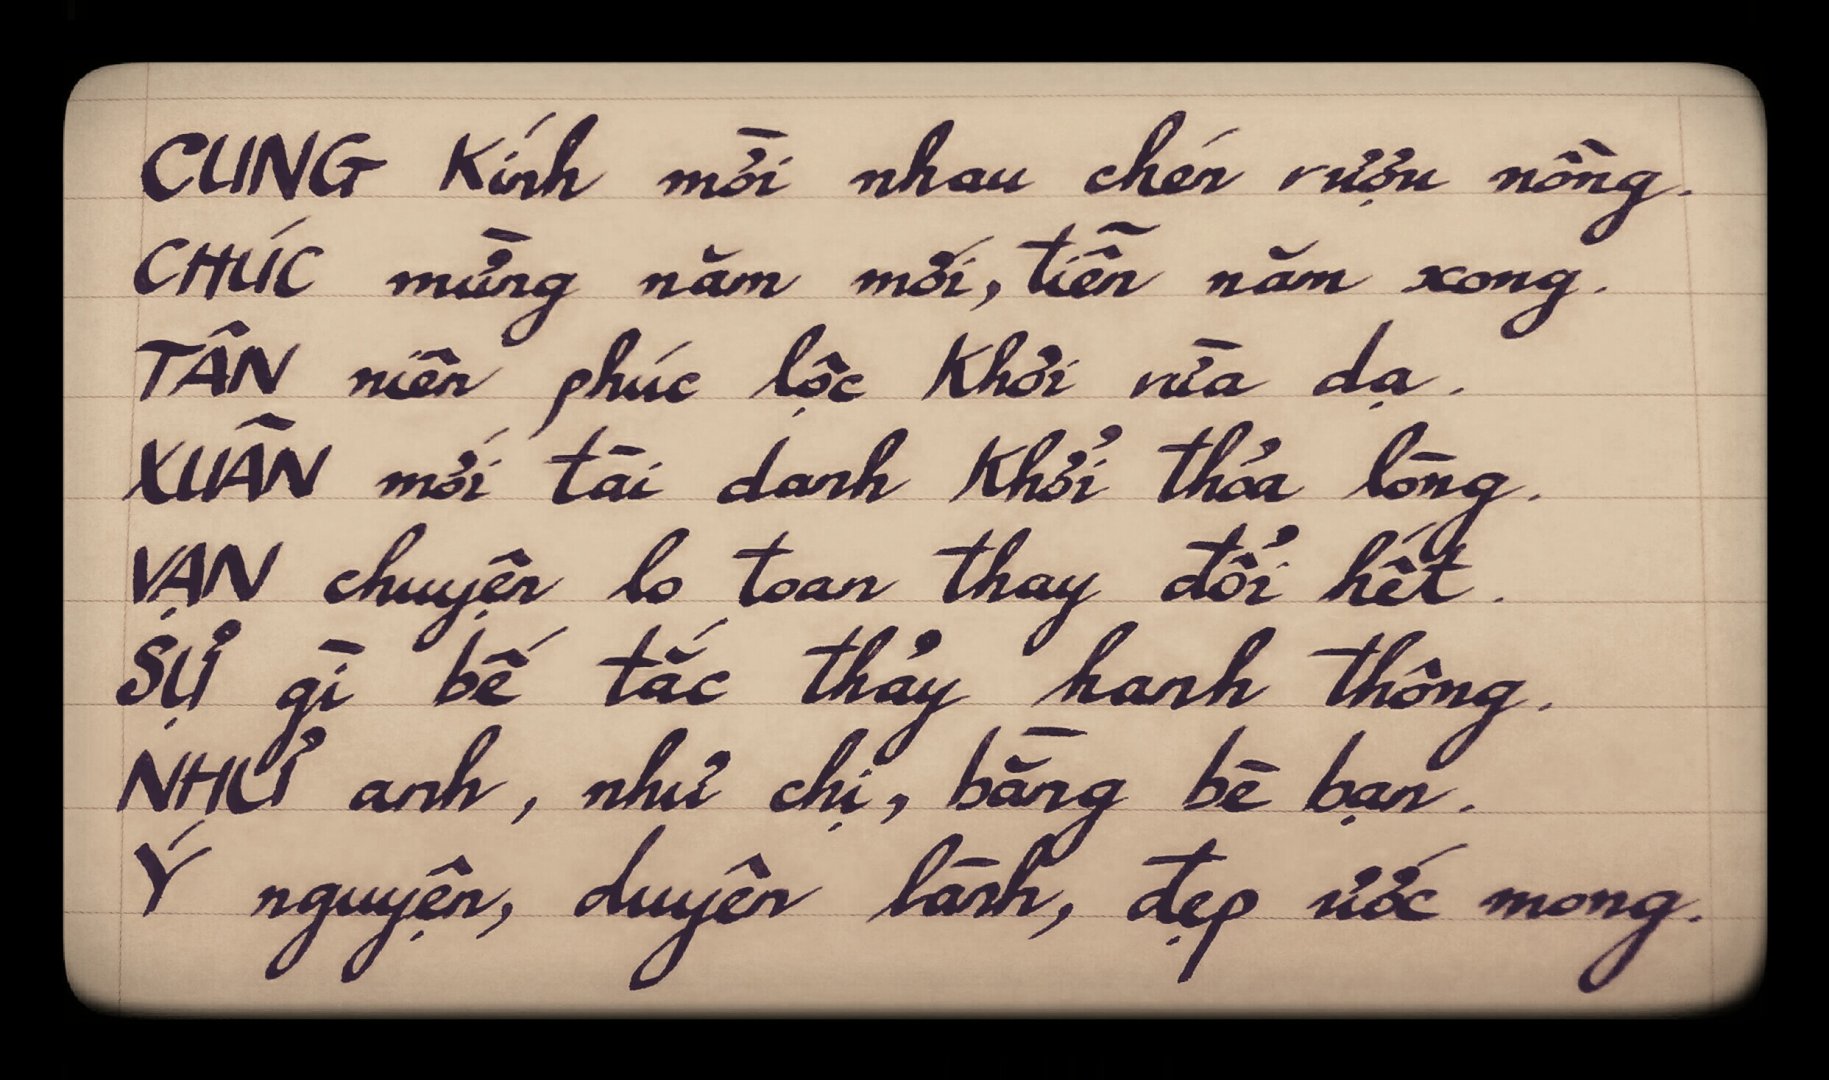 CUNG Kính mời nhau chén rượu nồng.
CHÚC mừng năm mới, tiễn năm xong.
TÂN niên phúc lộc Khơi vừa dạ.
XUÂN mới tài danh Khởi thỏa lòng.
VẠN chuyện lo toan thay đổi hết.
SỰ gì bế tắc thảy hanh thông.
NHƯ anh, như chị, bằng bè bạn.
Ý nguyện, duyên lành, đẹp ước mong.